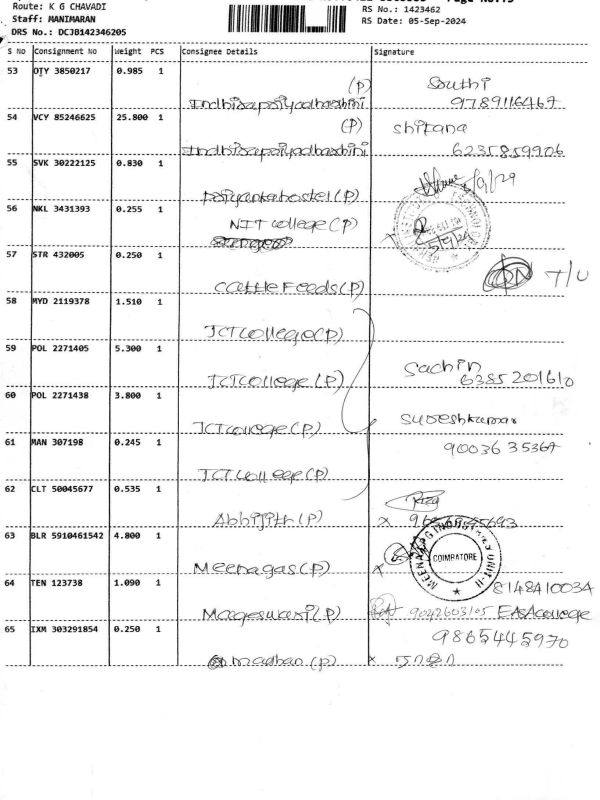 Page No.:5
Route: K G CHAVADI
RS No.: 1423462
Staff: MANIMARAN
RS Date: 05-Sep-2024
DRS No.: DCJB142346205
S No Consignment No Weight PCS Consignee Details Signature
53 OTY 3850217 0.985 1 (P) Southi
Indhisapriyadharshini 9789116467
54 VCY 85246625 25.800 1 (P) shifana
Indhisapriyadharshini 6235859906
55 SVK 30222125 0.830 1
Priyankahostel (P)
56 NKL 3431393 0.255 1 NIT College (P)
57 STR 432005 0.250 1
Cattle Feeds (P)
58 MYD 2119378 1.510 1
JCT College (P)
59 POL 2271405 5.300 1 Sachin
JCT College (P) 6385201610
60 POL 2271438 3.800 1 Sureshkumar
JCT College (P) 9003635367
61 MAN 307198 0.245 1
JCT College (P)
62 CLT 50045677 0.535 1
Abhijith (P) x
63 BLR 5910461542 4.800 1 COIMBATORE
Meenagas (P) x
64 TEN 123738 1.090 1 8148410034
Mageswari (P) 9042603105 EASA college
65 IXM 303291854 0.250 1 9865445970
madhan (P) x